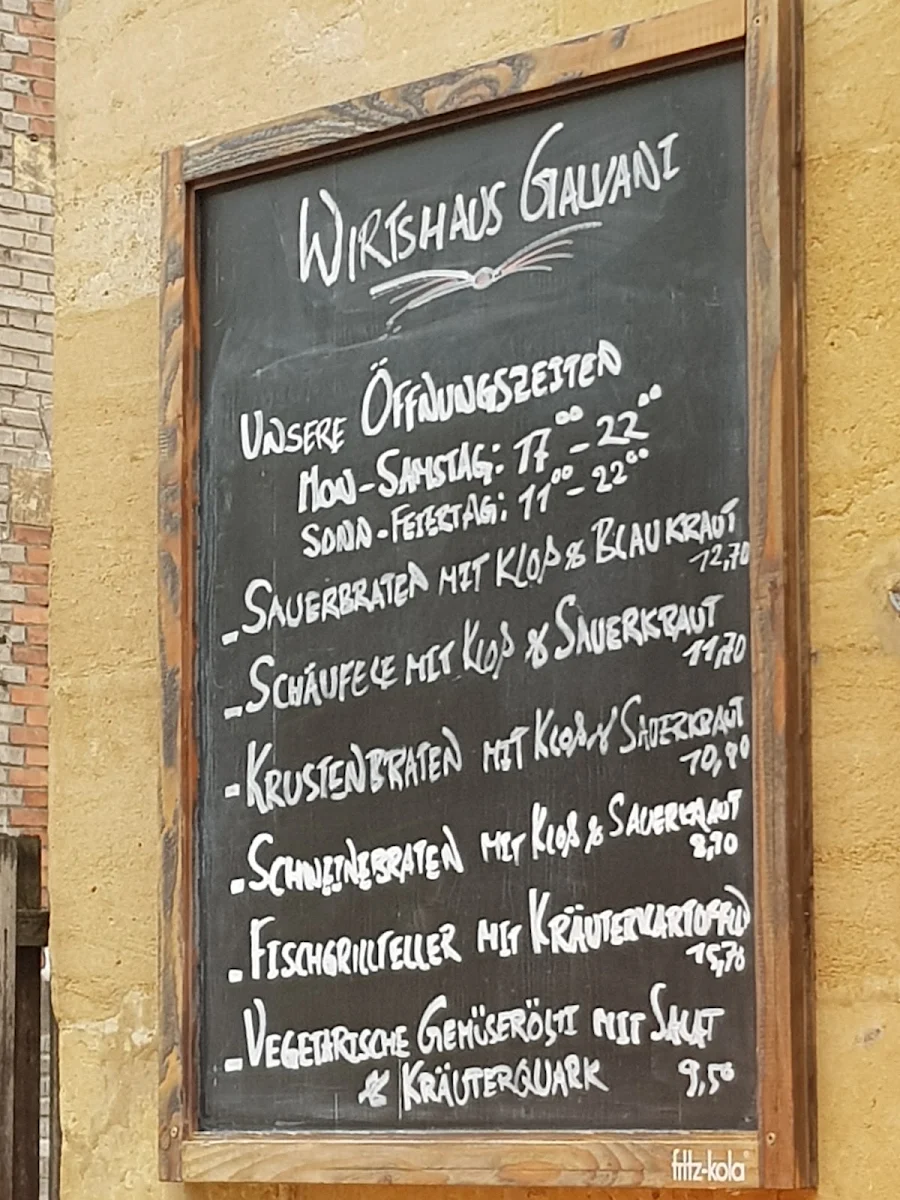 WIRTSHAUS GALVANI
UNSERE ÖFFNUNGSZEITEN
MON-SAMSTAG: 17⁰⁰-22⁰⁰
SONN-FEIERTAG: 11⁰⁰-22⁰⁰
- SAUERBRATEN MIT KLOß & BLAUKRAUT
12,70
- SCHÄUFELE MIT KLOß & SAUERKRAUT
11,70
- KRUSTENBRATEN MIT KLOß & SAUERKRAUT
10,90
- SCHWEINEBRATEN MIT KLOß & SAUERKRAUT
8,70
- FISCHGRILLTELLER MIT KRÄUTERKARTOFFELN
15,70
- VEGETARISCHE GEMÜSERÖSTI MIT SALAT
& KRÄUTERQUARK 9,50
fritz-kola